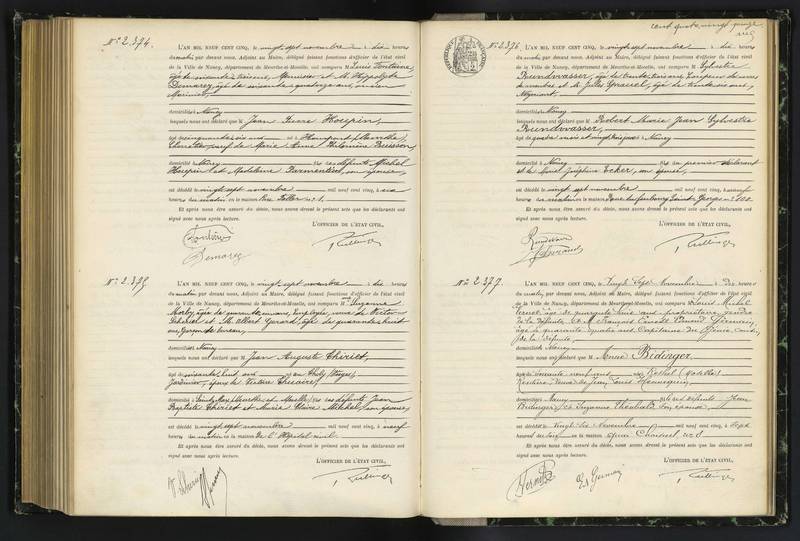 cent quatre vingt
N° 2.374.
L'AN MIL NEUF CENT CINQ, le vingt sept novembre à dix heures
du matin par devant nous, Adjoint au Maire, délégué faisant fonctions d'officier de l'état civil
de la Ville de Nancy, département de Meurthe-et-Moselle, ont comparu M Louis Fontaine,
âgé de soixante treize ans, Menuisier et M. Hippolyte
Demarez, âgé de soixante quatorze ans, ancien
domiciliés à Nancy
lesquels nous ont déclaré que M Jean Pierre Houpin,
âgé de cinquante six ans né à
veuf de Marie Anne Philomène Buisson,
domicilié à Nancy fils des défunts Michel
Houpin et Madeleine Parmentier, son épouse,
est décédé le vingt sept novembre mil neuf cent cinq, à
heures du matin en la maison Rue n° 1.
Et après nous être assuré du décès, nous avons dressé le présent acte que les déclarants ont
signé avec nous après lecture.
L'OFFICIER DE L'ÉTAT CIVIL,
Demarez
N° 2.375
L'AN MIL NEUF CENT CINQ, le vingt sept novembre à dix heures
du matin, par devant nous, Adjoint au Maire, délégué faisant fonctions d'officier de l'état civil
de la Ville de Nancy, département de Meurthe-et-Moselle, ont comparu Mme Suzanne
âgée de quarante ans, employée, veuve de Victor
Thiriet et M. Albert Girard, âgé de quarante huit
ans, Garçon de bureau,
domiciliés à Nancy
lesquels nous ont déclaré que M Jean Auguste Thiriet,
âgé de soixante huit ans né au Tholy (Vosges)
Jardinier, époux de Victoire
domicilié à Saint Max (Meurthe et Moselle) fils des défunts Jean
Baptiste Thiriet et Marie Claire Michel, son épouse,
est décédé le vingt sept novembre mil neuf cent cinq, à neuf
heures du matin en la maison de l'Hôpital civil.
Et après nous être assuré du décès, nous avons dressé le présent acte que les déclarants ont
signé avec nous après lecture.
L'OFFICIER DE L'ÉTAT CIVIL,
N° 2.376.
L'AN MIL NEUF CENT CINQ, le vingt sept novembre à dix heures
du matin par devant nous, Adjoint au Maire, délégué faisant fonctions d'officier de l'état civil
de la Ville de Nancy, département de Meurthe-et-Moselle, ont comparu M Sylvestre
Rundwasser, âgé de trente trois ans,
de marbre et M. Jules âgé de trente six ans,
Négociant,
domiciliés à Nancy
lesquels nous ont déclaré que M Robert Marie Jean Sylvestre
Rundwasser,
âgé de quatre mois et vingt trois jours né à Nancy
domicilié à Nancy fils du premier déclarant
et de Joséphine Ecker, son épouse,
est décédé le vingt sept novembre mil neuf cent cinq, à
heures du matin en la maison Rue du faubourg Saint Georges n° 100.
Et après nous être assuré du décès, nous avons dressé le présent acte que les déclarants ont
signé avec nous après lecture.
L'OFFICIER DE L'ÉTAT CIVIL,
N° 2.377.
L'AN MIL NEUF CENT CINQ, le Vingt Sept Novembre à dix heures
du matin, par devant nous, Adjoint au Maire, délégué faisant fonctions d'officier de l'état civil
de la Ville de Nancy, département de Meurthe-et-Moselle, ont comparu Louis Michel
âgé de quarante huit ans propriétaire, Gendre
de la défunte et M. François Louis Edmond Germain,
âgé de quarante quatre ans Capitaine du Génie, Cousin
de la défunte,
domiciliés à Nancy
lesquels nous ont déclaré que M Anne Bidinger
âgée de soixante neuf ans née à (Moselle)
Rentière, Veuve de Jean Louis Hennequin,
domiciliée à Nancy fille des défunts Jean
Bidinger et de Suzanne Theobald son épouse
est décédée le Vingt Six Novembre mil neuf cent cinq, à sept
heures du soir en la maison Quai Choiseul n° 8
Et après nous être assuré du décès, nous avons dressé le présent acte que les déclarants ont
signé avec nous après lecture.
L'OFFICIER DE L'ÉTAT CIVIL,
Germain